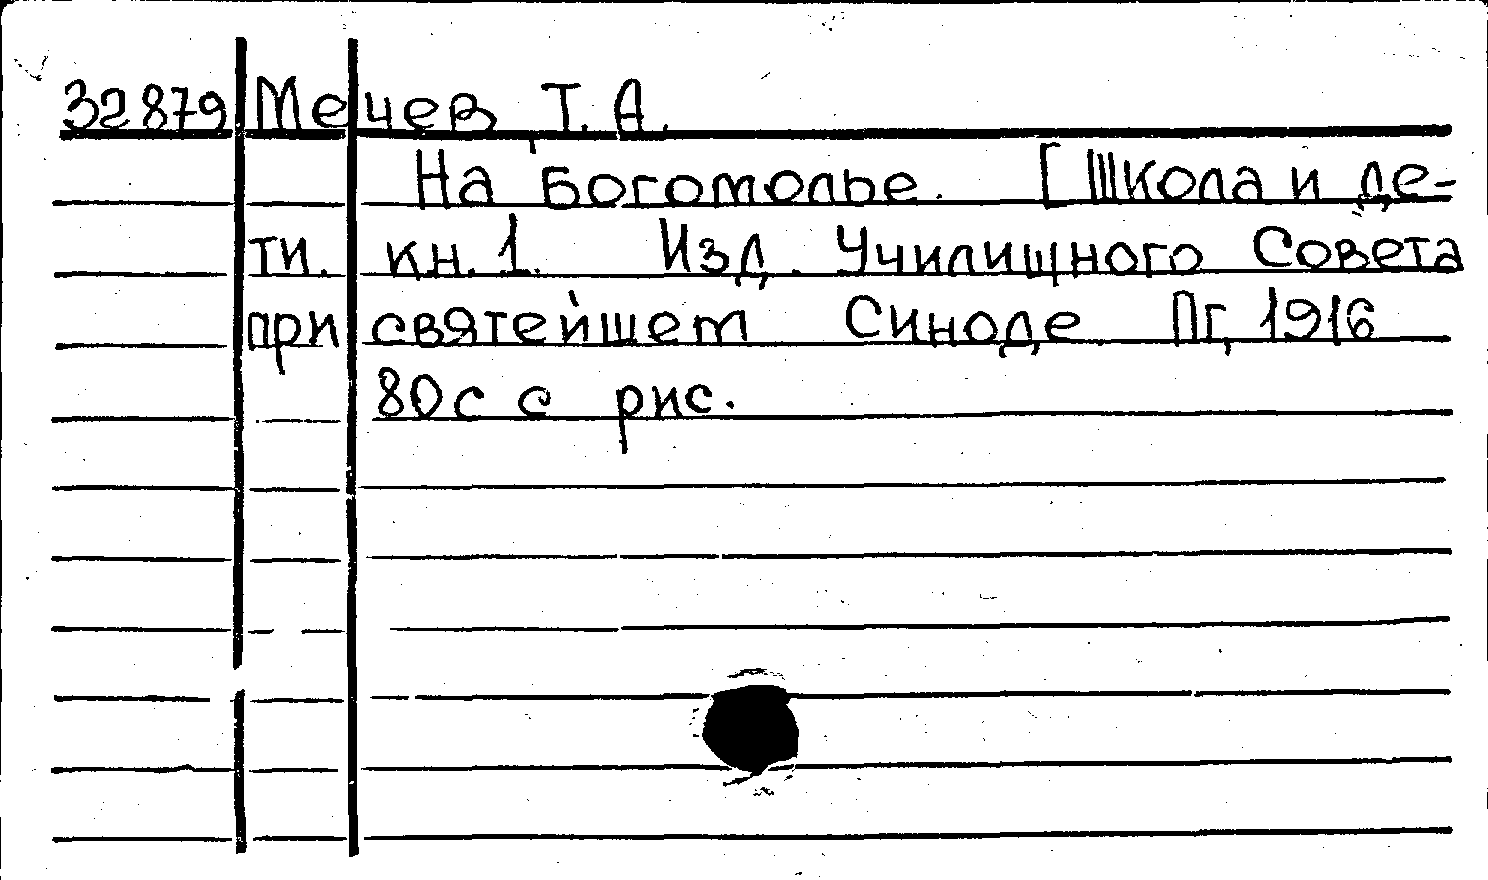 32879 Мечев Т. А.
На Богомолье. [Школа и де-
ти. кн. 1. Изд. Училищного Совета
при святейшем Синоде. Пг, 1916
80с с рис.